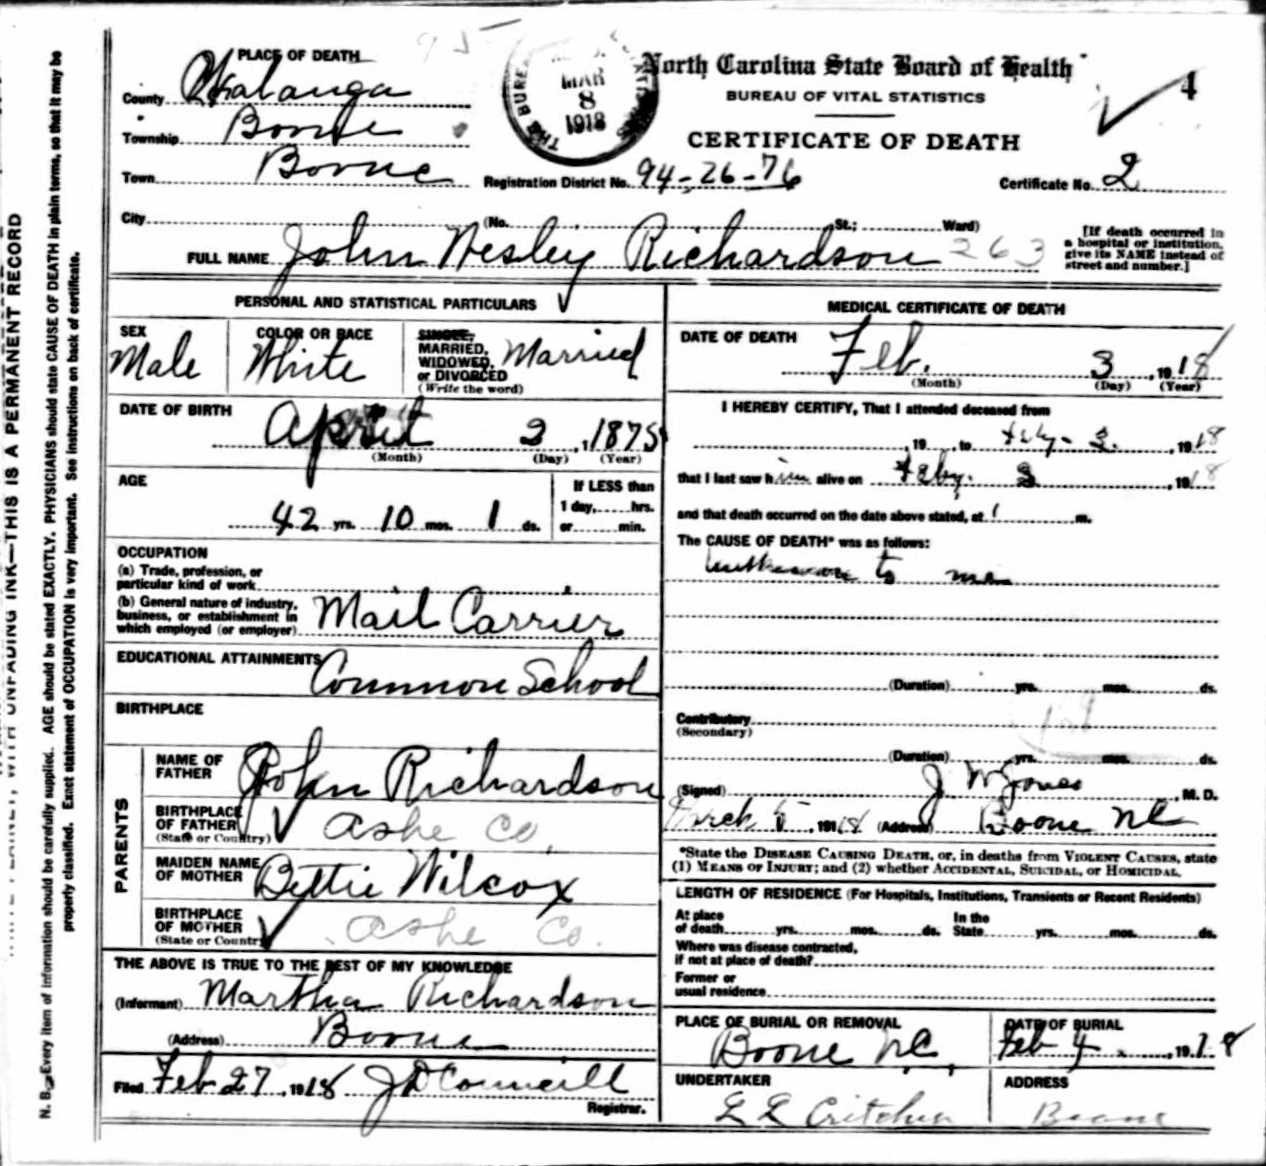 PLACE OF DEATH
County Watauga
Township Boone
Town Boone
MAR
8
1918
North Carolina State Board of Health
BUREAU OF VITAL STATISTICS
CERTIFICATE OF DEATH
4
Registration District No. 94-26-76
Certificate No. 2
City (No. St.; Ward)
FULL NAME John Wesley Richardson 263
[If death occurred in
a hospital or institution,
give its NAME instead of
street and number.]
PERSONAL AND STATISTICAL PARTICULARS
SEX
Male
COLOR OR RACE
White
SINGLE,
MARRIED,
WIDOWED,
or DIVORCED
(Write the word)
Married
DATE OF BIRTH
April 2, 1875
(Month) (Day) (Year)
AGE
42 yrs. 10 mos. 1 ds.
If LESS than
1 day, hrs.
or min.
OCCUPATION
(a) Trade, profession, or
particular kind of work
(b) General nature of industry,
business, or establishment in
which employed (or employer)
Mail Carrier
EDUCATIONAL ATTAINMENTS
Common School
BIRTHPLACE
PARENTS
NAME OF
FATHER
John Richardson
BIRTHPLACE
OF FATHER
(State or Country)
Ashe Co.
MAIDEN NAME
OF MOTHER
Bettie Wilcox
BIRTHPLACE
OF MOTHER
(State or Country)
Ashe Co.
THE ABOVE IS TRUE TO THE BEST OF MY KNOWLEDGE
(Informant) Martha Richardson
(Address) Boone
Filed Feb 27, 1918 J D Councill
Registrar.
MEDICAL CERTIFICATE OF DEATH
DATE OF DEATH
Feb. 3, 1918
(Month) (Day) (Year)
I HEREBY CERTIFY, That I attended deceased from
, 19 , to Feby. 3, 1918
that I last saw him alive on Feby. 3, 1918
and that death occurred on the date above stated, at 1 m.
The CAUSE OF DEATH* was as follows:
unknown to me
(Duration) yrs. mos. ds.
Contributory
(Secondary)
(Duration) yrs. mos. ds.
(Signed) J W Jones, M. D.
March 5, 1918 (Address) Boone NC
*State the DISEASE CAUSING DEATH, or, in deaths from VIOLENT CAUSES, state
(1) MEANS OF INJURY; and (2) whether ACCIDENTAL, SUICIDAL, or HOMICIDAL.
LENGTH OF RESIDENCE (For Hospitals, Institutions, Transients or Recent Residents)
At place
of death yrs. mos. ds.
In the
State yrs. mos. ds.
Where was disease contracted,
if not at place of death?
Former or
usual residence
PLACE OF BURIAL OR REMOVAL
Boone N.C.
DATE OF BURIAL
Feb 4, 1918
UNDERTAKER
L L Critcher
ADDRESS
Boone
WITH UNFADING INK—THIS IS A PERMANENT RECORD
N. B.—Every item of information should be carefully supplied. AGE should be stated EXACTLY. PHYSICIANS should state CAUSE OF DEATH in plain terms, so that it may be
properly classified. Exact statement of OCCUPATION is very important. See instructions on back of certificate.